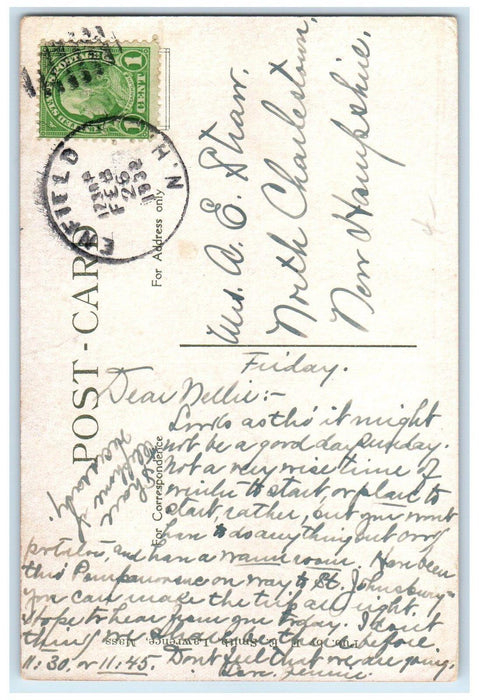 POSTAGE
1 CENT 1
ENFIELD N.H.
FEB
26
1932
POST-CARD
For Address only
For Correspondence
Mrs. A. E. Straw.
North Charlestown,
New Hampshire.
4-
Friday.
Dear Nellie:-
Looks as tho' it might
not be a good day Sunday.
Not a very wise time of
winter to start, or place to
start rather, but you won't
have to do anything but
potatoes, and have a warm room. Have been
this on way to St. Johnsbury-
you can make the trip all right.
Hope to hear from you today. I don't
think we before
11:30. or 11:45. Don't feel that we are going.
Love, Jennie.
Pub. by H. E. Smith, Lawrence, Mass.